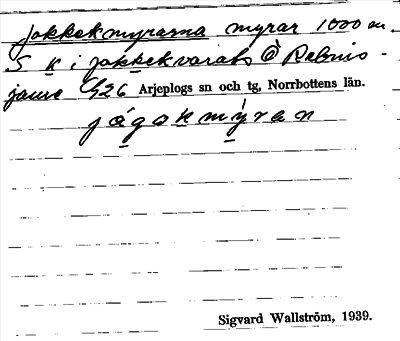 Jokkekmyrarna myrar 1000 m
S k i jokkekvarats @ Rebnis-
jaure C/126 Arjeplogs sn och tg, Norrbottens län.
jågakmýran
Sigvard Wallström, 1939.